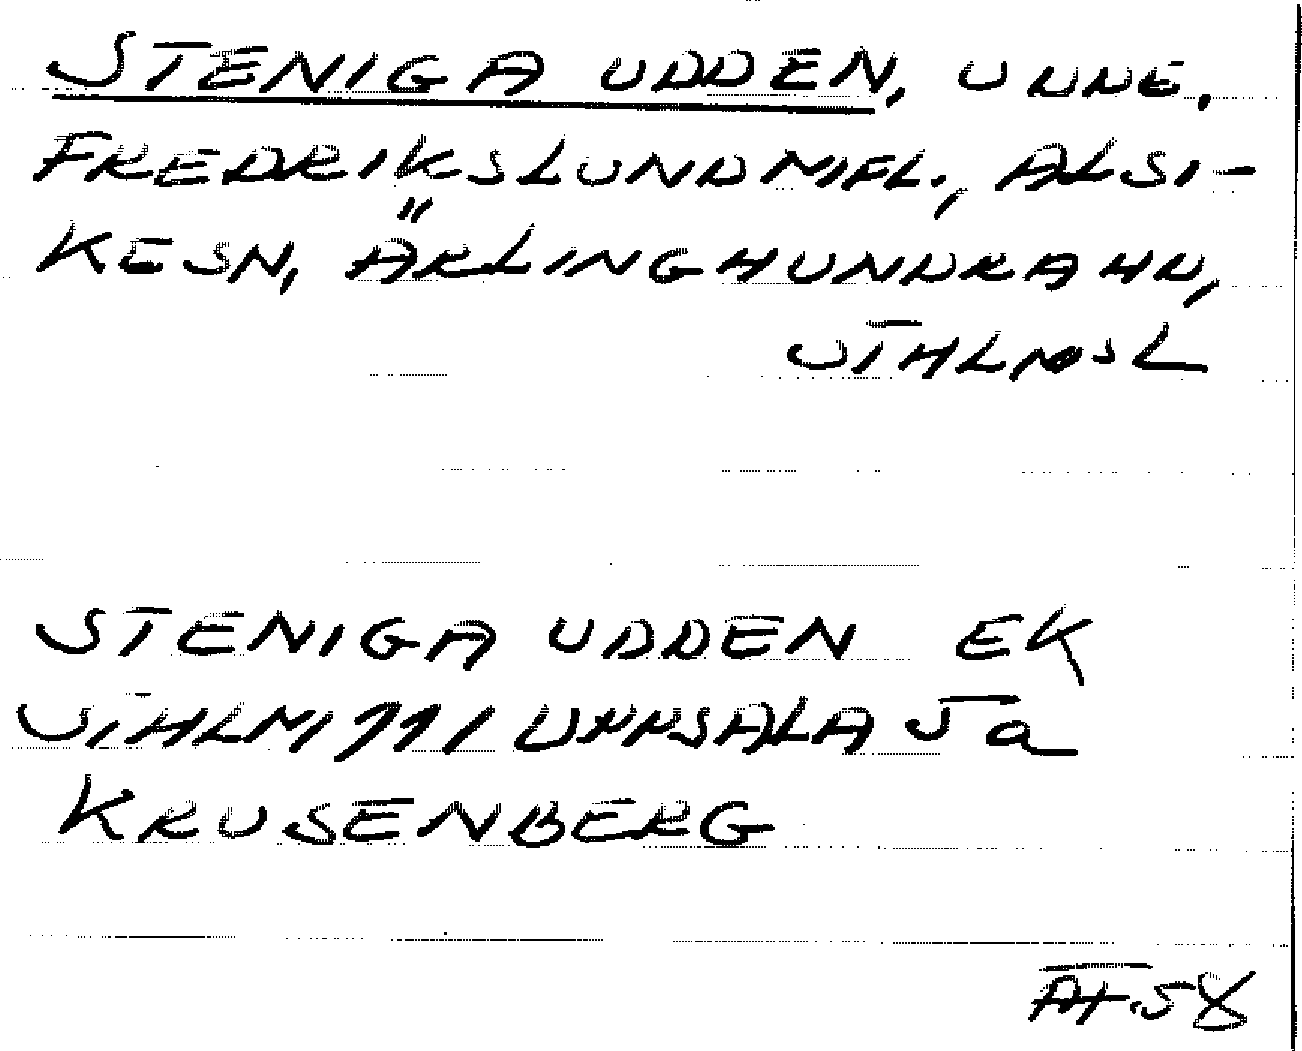 STENIGA UDDEN, UNDE.
FREDRIKSLUND MIFL., ALSI-
KESN, ÄRLINGHUNDRAHD,
STHLMSL
STENIGA UDDEN EK
STHLM 111 UPPSALA 5a
KRUSENBERG